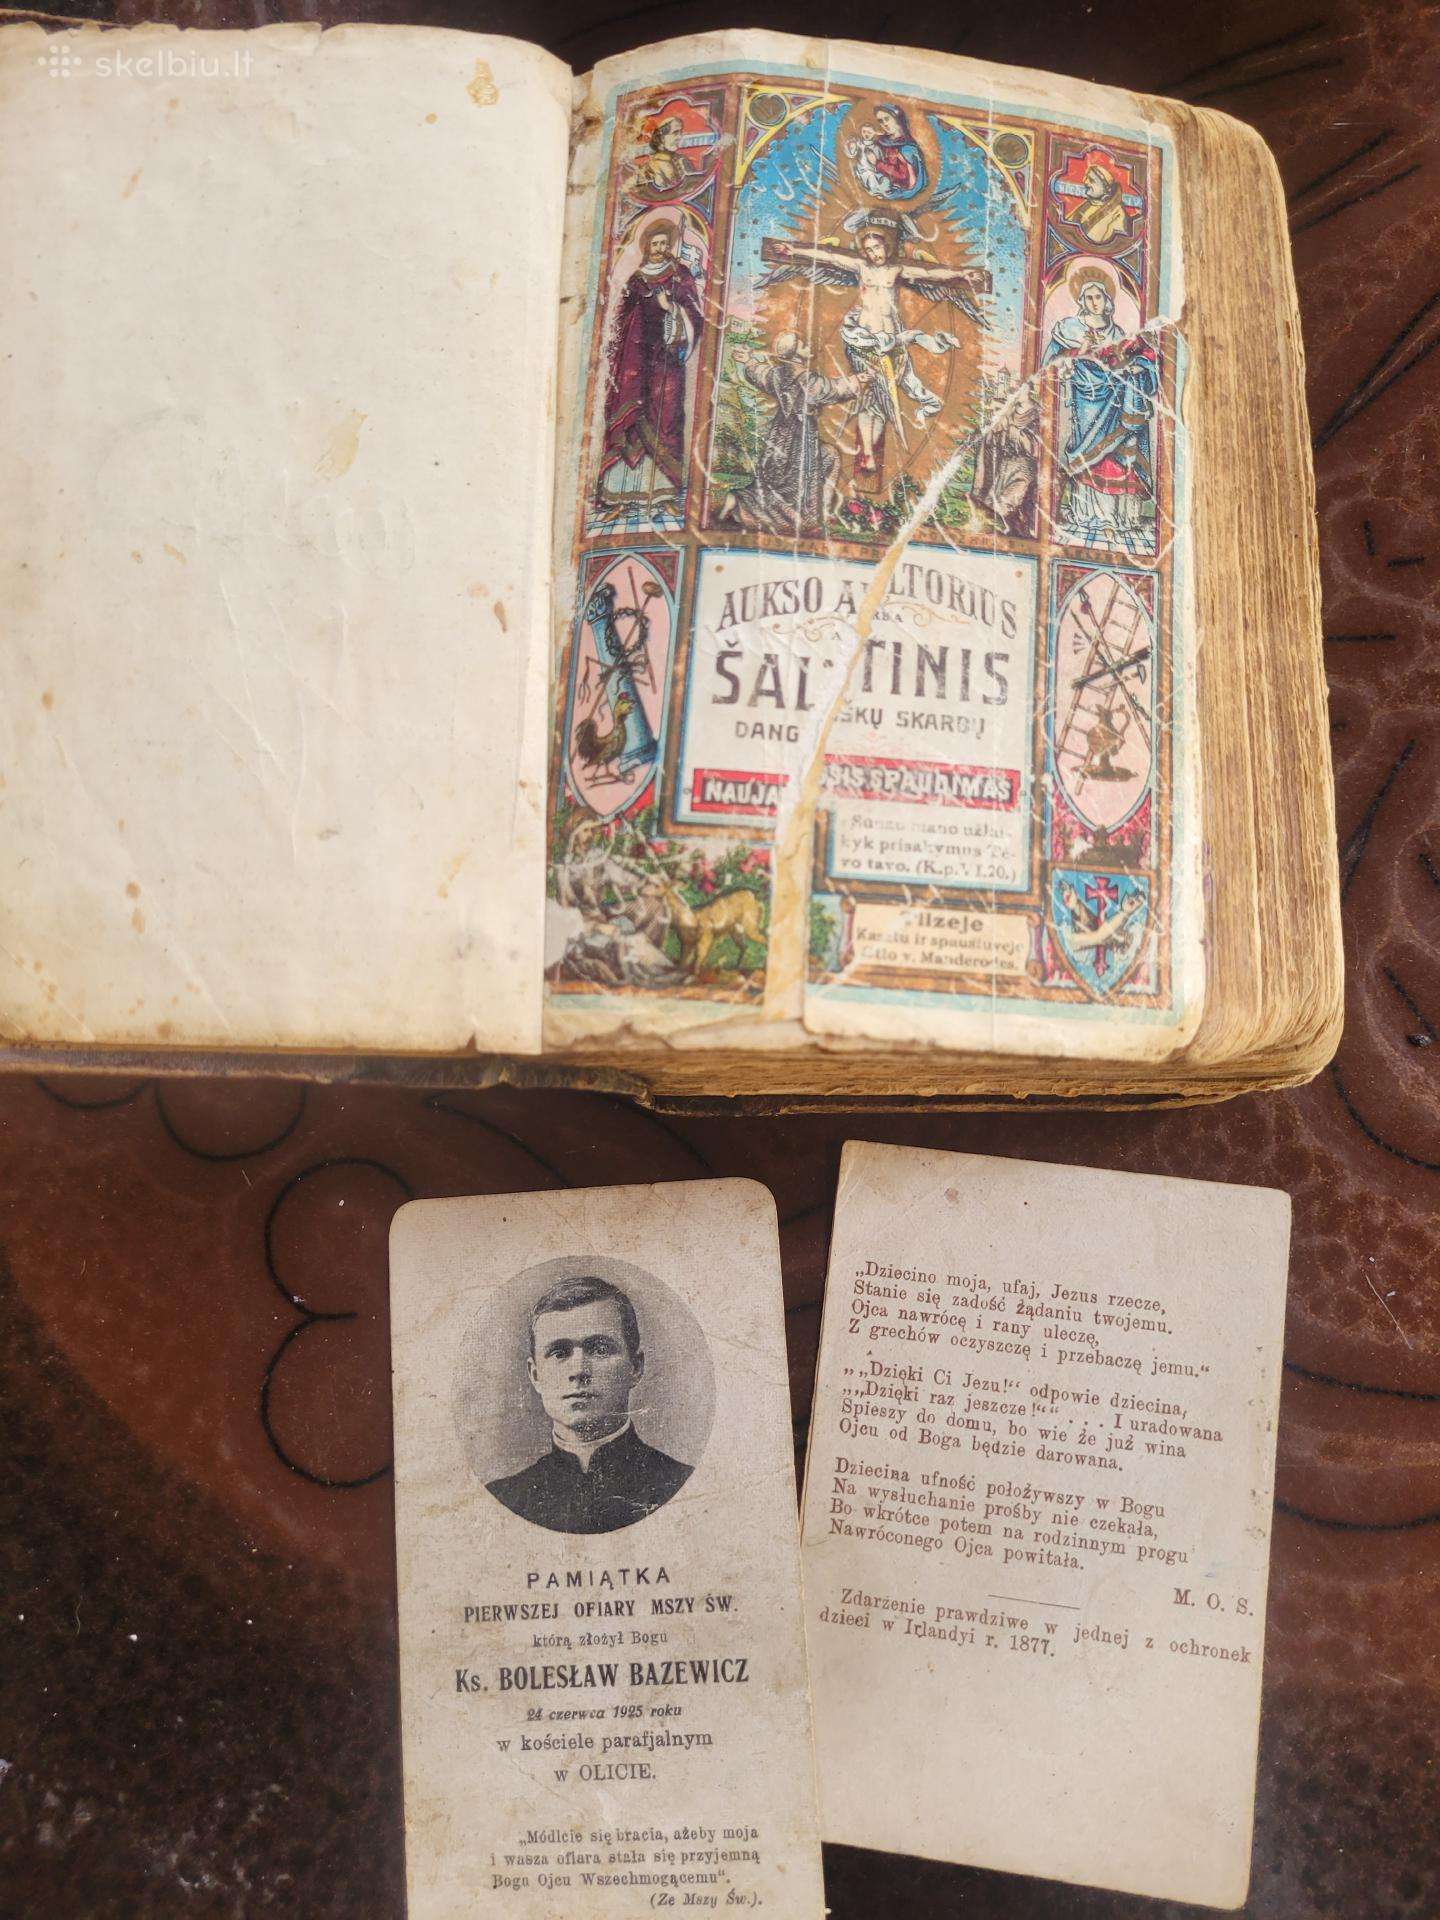 skelbiu.lt
AUKSO ALTORIUS
ARBA
ŠALTINIS
DANGIŠKŲ SKARBŲ
NAUJAUSIS SPAUDIMAS
Sūnau mano užlai-
kyk prisakymus Tė-
vo tavo. (K.p.VI.20.)
Tilžeje
Kasztu ir spaustuveje
Otto v. Manderodes.
PAMIĄTKA
PIERWSZEJ OFIARY MSZY ŚW.
którą złożył Bogu
Ks. BOLESŁAW BAZEWICZ
24 czerwca 1925 roku
w kościele parafjalnym
w OLICIE.
„Módlcie się bracia, ażeby moja
i wasza ofiara stała się przyjemną
Bogu Ojcu Wszechmogącemu“.
(Ze Mszy Św.).
„Dziecino moja, ufaj, Jezus rzecze,
Stanie się zadość żądaniu twojemu.
Ojca nawrócę i rany uleczę,
Z grechów oczyszczę i przebaczę jemu.“
„„Dzięki Ci Jezu!“ odpowie dziecina,
„„Dzięki raz jeszcze!““ . . . I uradowana
Spieszy do domu, bo wie że już wina
Ojcu od Boga będzie darowana.
Dziecina ufność położywszy w Bogu
Na wysłuchanie prośby nie czekała,
Bo wkrótce potem na rodzinnym progu
Nawróconego Ojca powitała.
M. O. S.
Zdarżenie prawdziwe w jednej z ochronek
dzieci w Irlandyi r. 1877.